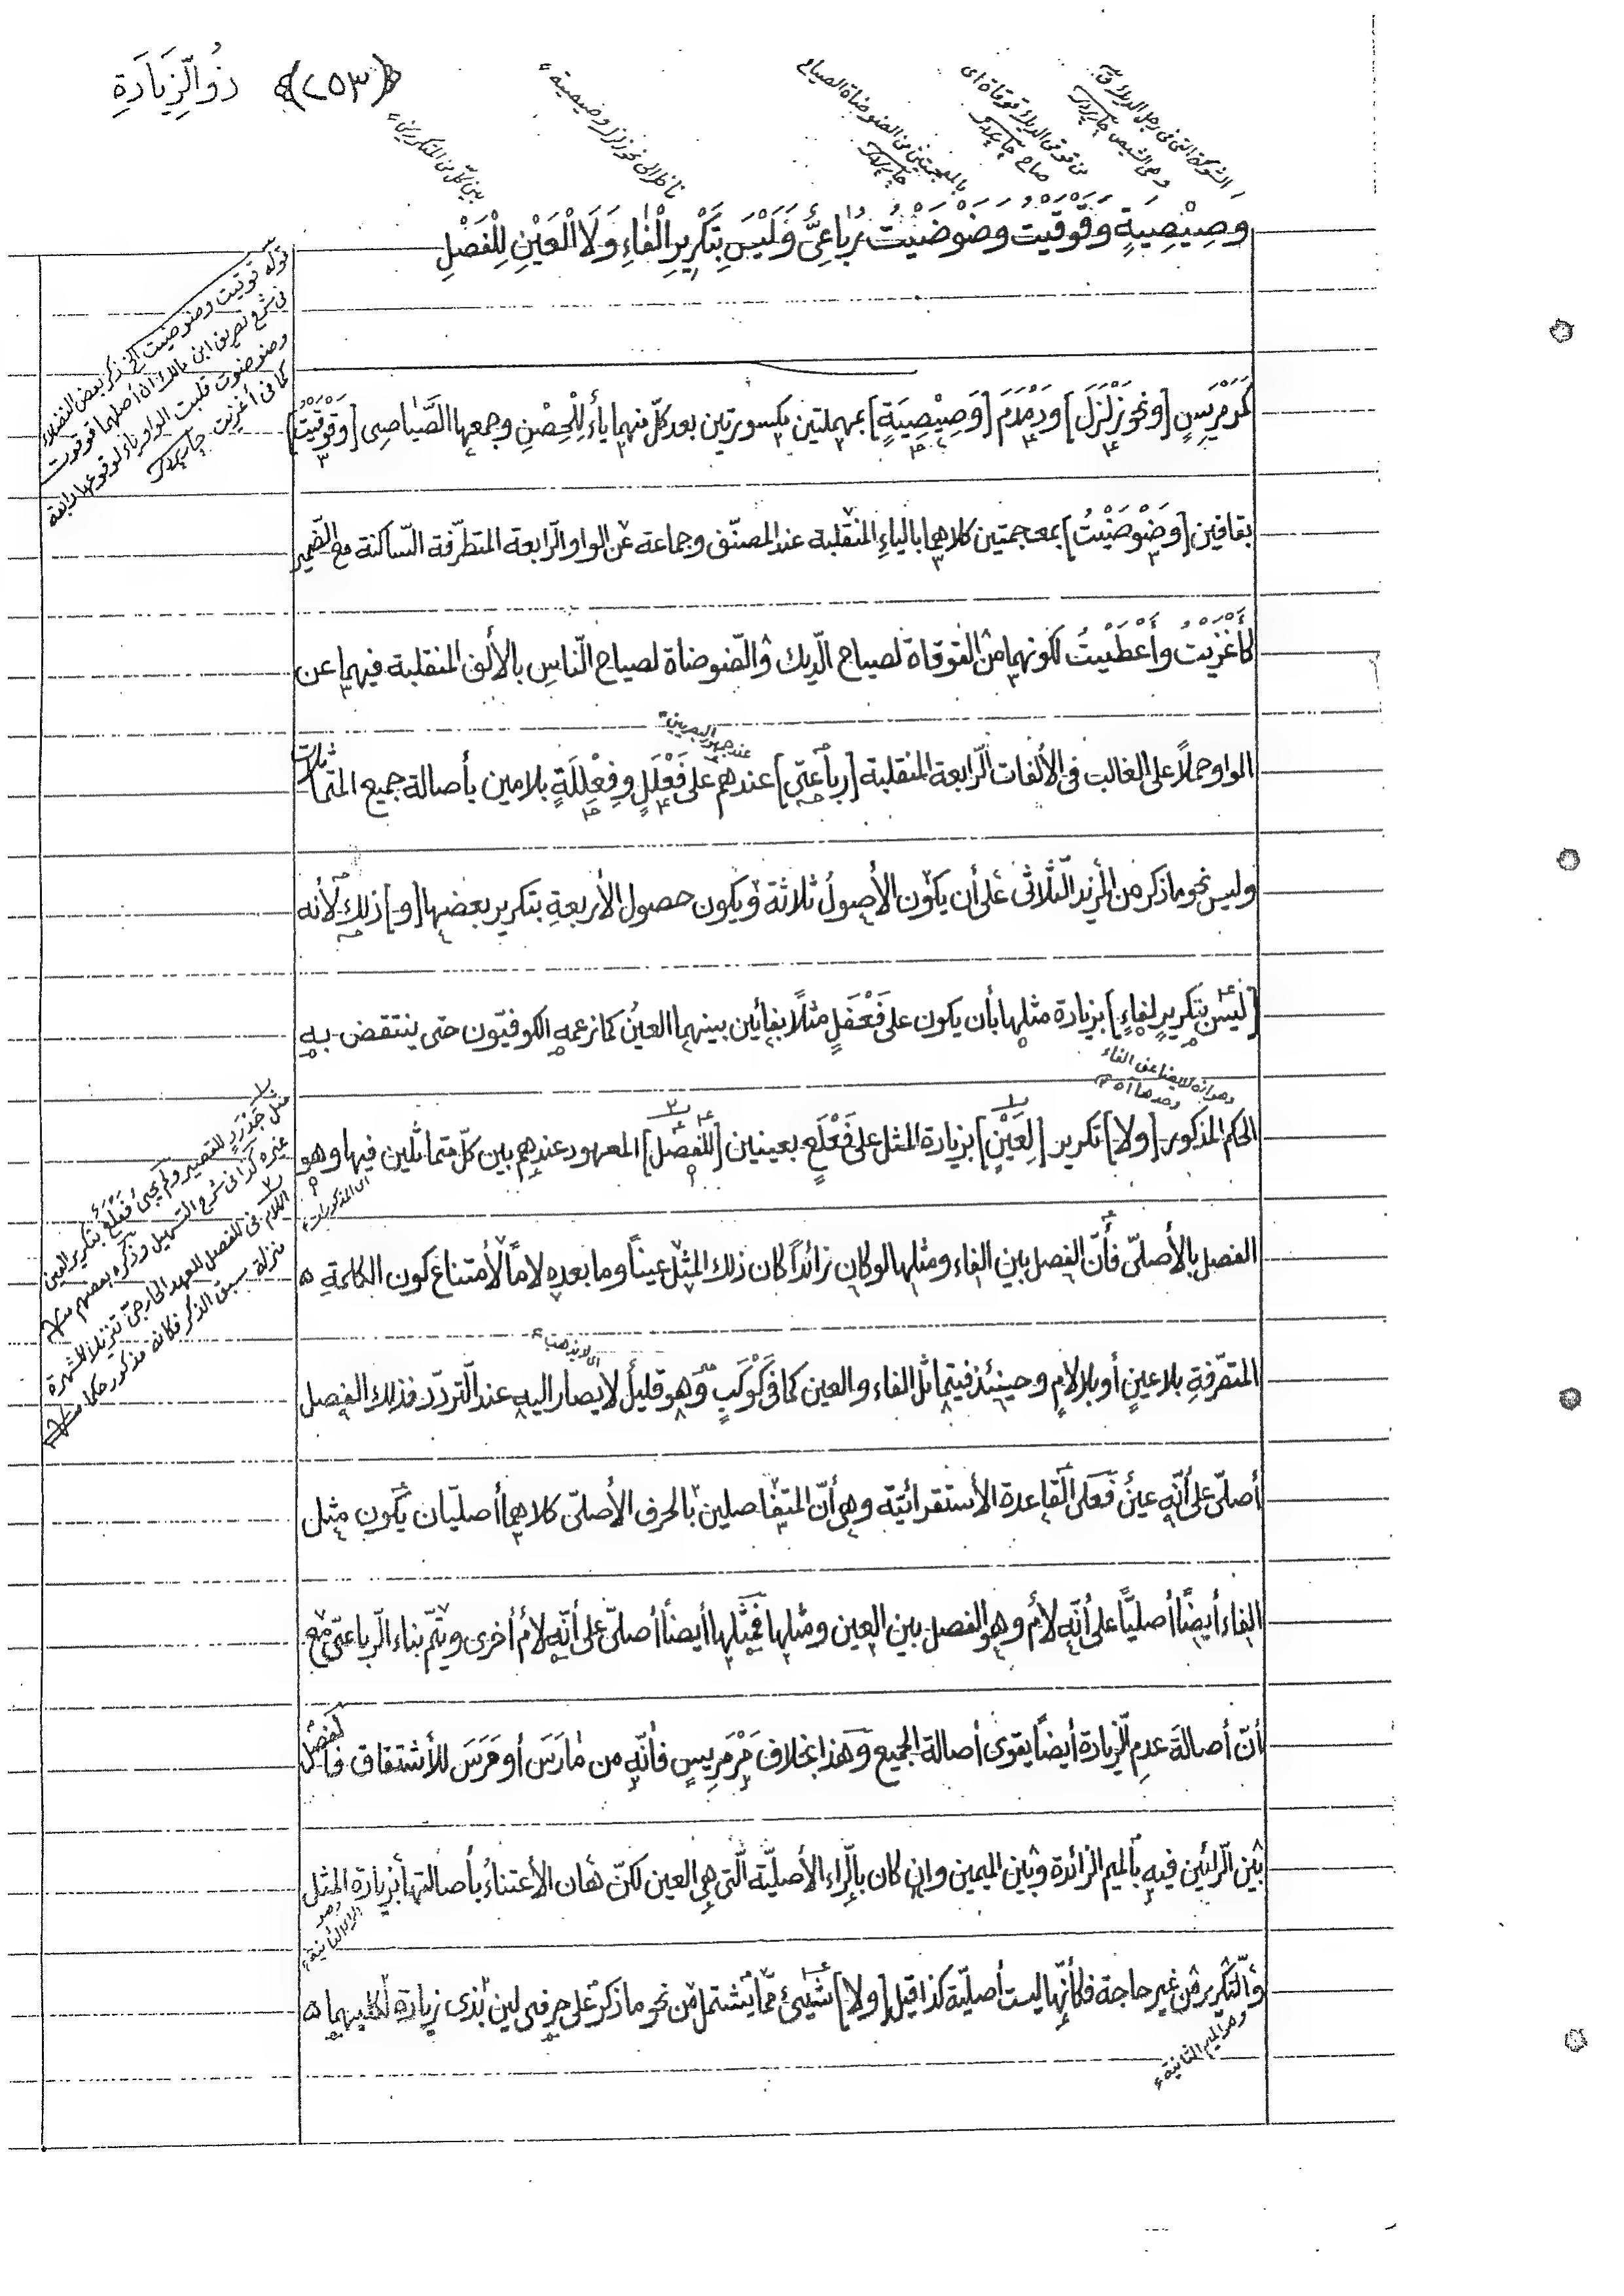 ذُو الزِّيَادَةِ (٢٥٣)
الشوكة التى فى رجل الديك ق
وهى الشيص جاربردى
من قوقى الديك قوقاة اى
صاح جاربردى
بالمعجمتين من الضوضاة الصياح
جاربردى
ناظر الى نحو زلزل وصيصية
بين كل من المتكررين
وَصِيْصِيَةٍ وَقَوْقَيْتُ وَضَوْضَيْتُ رُبَاعِىٌّ وَلَيْسَ بِتَكْرِيْرِ الْفَاءِ وَلَا الْعَيْنِ لِلْفَصْلِ
كَمَرْمَرِيْسٍ [ونحو زَلْزَلَ] ودَمْدَمَ [وَصِيْصِيَةٍ] بمهملتين مكسورتين بعد كلّ منهما ياء لِلْحِصْنِ وجمعها الصَّيَاصِى [وَقَوْقَيْتُ]
بقافين [وَضَوْضَيْتُ] بمعجمتين كلاهما بالياءِ المنقلبة عند المصنّف وجماعة عن الواو الرّابعة المتطرّفة السّاكنة مع الضّمير
كأَغْزَيْتُ وأَعْطَيْتُ لكونهما من القوقاة لصياح الدّيك والضّوضاة لصياح النّاس بالألف المنقلبة فيهما عن
عند جمهور البصريين
الواو حملاً على الغالب فى الألفات الرّابعة المنقلبة [رباعىّ] عندهم على فَعْلَلٍ وفِعْلِلَةٍ بلامين بأصالة جميع المتماثلات
وليس نحو ما ذكر من المزيد الثّلاثى على أن يكون الأصولُ ثلاثة ويكون حصول الأربعةِ بتكرير بعضها [و] ذلك لأنه
[ليس بتكريرٍ لفاءٍ] بزيادة مثلها بأن يكون على فَعْفَلٍ مثلاً بفائين بينهما العينُ كما زعمه الكوفيّون حتى ينتقض به
الحكم المذكور [ولا] تكرير [لِعَيْنٍ] بزيادة المثل على فَعْلَعٍ بعينين [للفصل] المعهود عندهم بين كلّ متماثلين فيها وهو
اى المذكورات
الفصل بالأصلىّ فأنّ الفصل بين الفاء ومثلها لو كان زائداً كان ذلك المثل عيناً وما بعده لاماً لأمتناع كون الكلمةِ
المتصّرفةِ بلا عينٍ أو بلا لامٍ وحينئذ فيتماثل الفاء والعين كما فى كَوْكَبٍ وهو قليل لا يصار اليه عند التّردّد فذلك الفصل
اى لا يذهب
أصلىّ على أنّه عينٌ فعلى القاعدة الأستقرائيّة وهى أنّ المتفاصلين بالحرف الأصلىّ كلاهما أصليّان يكون مثل
الفاء أيضًا أصليًّا على أنّه لامٌ وهو الفصل بين العين ومثلها فمثلها أيضاً أصلىّ على أنّه لامٌ أخرى ويتمّ بناء الرّباعىّ مع
أنّ أصالةَ عدمِ الزّيادة أيضاً يقوى أصالة الجميع وهذا بخلاف مَرْمَرِيسٍ فأنّه من مَارَسَ أو مَرَسَ للأشتقاق فالفصل
بين الرّائين فيه بالميم الزائدة وبين الميمين وان كان بالرّاء الأصليّة الّتى هى العين لكنّ هان الأعتناءُ بأصالتها بزيادة المثل
وهو الراء الثانية
والتّكرير من غير حاجة فكأنّها ليست أصليّة كذا قيل [ولا] شئٌ ممّا يشتمل من نحو ما ذكر على حرفى لين بذى زيادة لكليهما
وهو الميم الثانية
قوله قوقيت وضوضيت الخ ذكر بعض الفضلاء
فى شرح تصريف ابن مالك ان أصلهما قوقوت
وضوضوت قلبت الواو ياء لوقوعها رابعة
كما فى أغزيت جاربردى
الكلام فى الفصل للعهد الخارجىّ تنزيلا للشهرة
منزلة سبق الذكر فكانه مذكور حكما